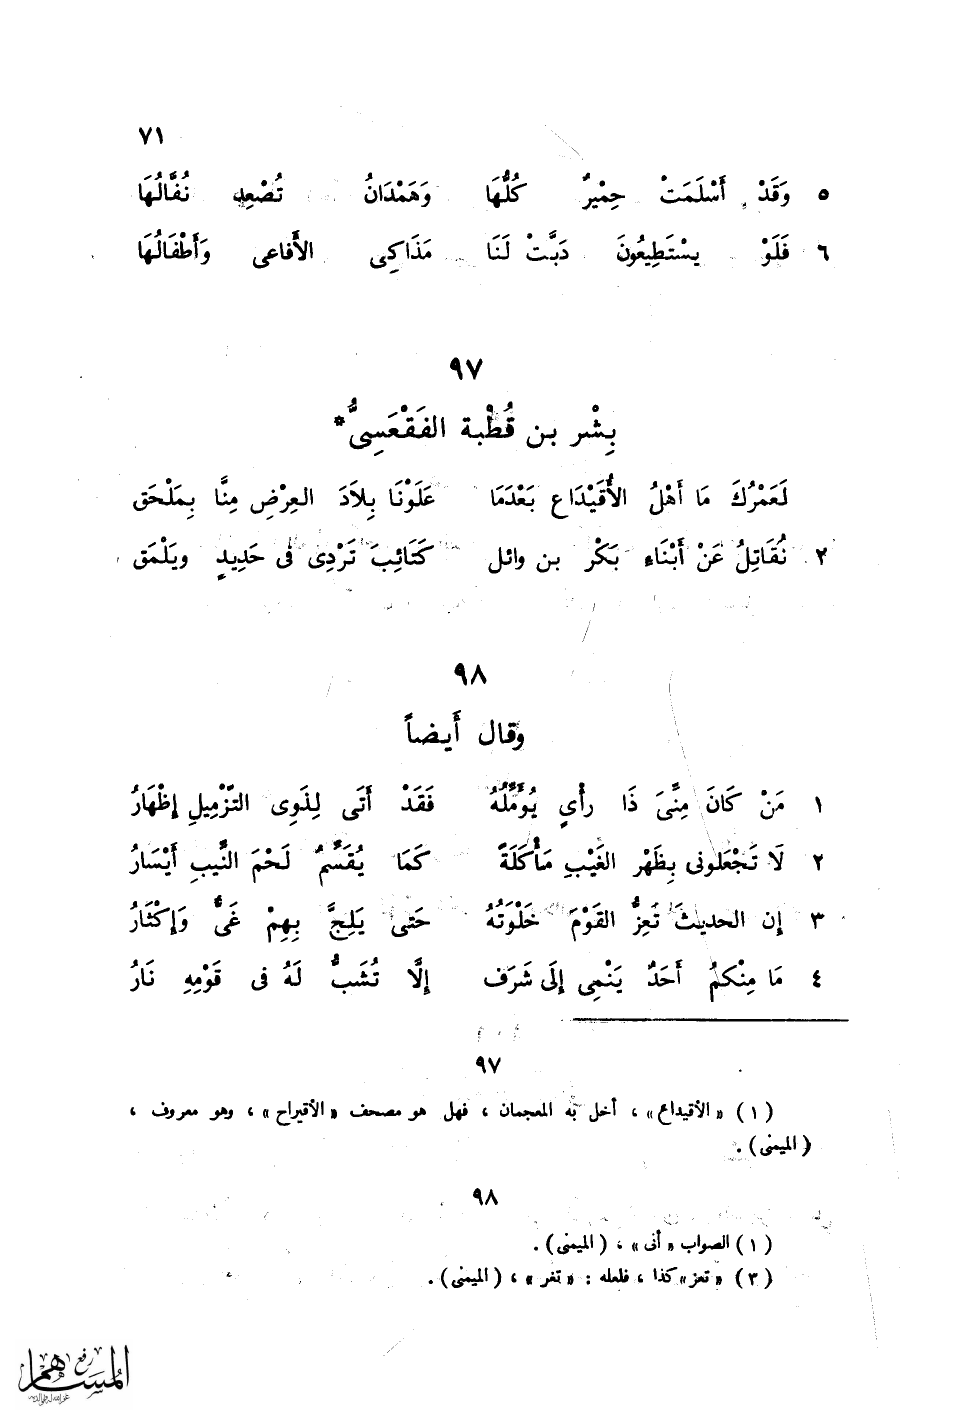 ٧١
٥ وَقَدْ أَسْلَمَتْ حِمْيرٌ كُلُّهَا وَهَمْدَانُ تُصْعِد نُقَّالُهَا
٦ فَلَوْ يسْتَطِيعُونَ دَبَّتْ لَنَا مَذَاكِى الأَفاعى وَأَطْفَالُهَا
٩٧
بِشْر بن قُطْبة الفَقْعَسِىُّ*
لَعَمْرُكَ مَا أَهْلُ الأُقَيْدَاعِ بَعْدَمَا عَلَوْنَا بِلاَدَ العِرْضِ مِنَّا بِمَلْحَق
٢ نُقَاتِلُ عَنْ أَبْنَاءِ بَكْر بن وائل كَتَائِبَ تَرْدِى فى حَدِيدٍ ويَلْمَق
٩٨
وقال أَيضاً
١ مَنْ كَانَ مِنِّىَ ذَا رأْىٍ يُؤَمِّلُهُ فَقَدْ أَتَى لِذَوِى التَّزْمِيلِ إِظْهَارُ
٢ لَا تَجْعَلونى بِظَهْر الغَيْبِ مَأْكَلَةً كَمَا يُقَسِّمُ لَحْمَ النِّيبِ أَيْسَارُ
٣ إِن الحديثَ تَعِزُّ القَوْمَ خَلْوَتُهُ حَتى يَلِجَّ بِهِمْ غَىٌّ وَإكْثَارُ
٤ مَا مِنْكمُ أَحَدٌ يَنْمِى إِلَى شَرَف إِلَّا تُشَبُّ لَهُ فى قَوْمِهِ نَارُ
٩٧
(١) «الأقيداع» ، أخل به المعجمان ، فهل هو مصحف «الأقيراح» ، وهو معروف ،
(الميمنى) .
٩٨
(١) الصواب « أنى » ، (الميمنى) .
(٣) « تعز » كذا ، فلعله : « تغر » ، (الميمنى) .
المساهم
رفع